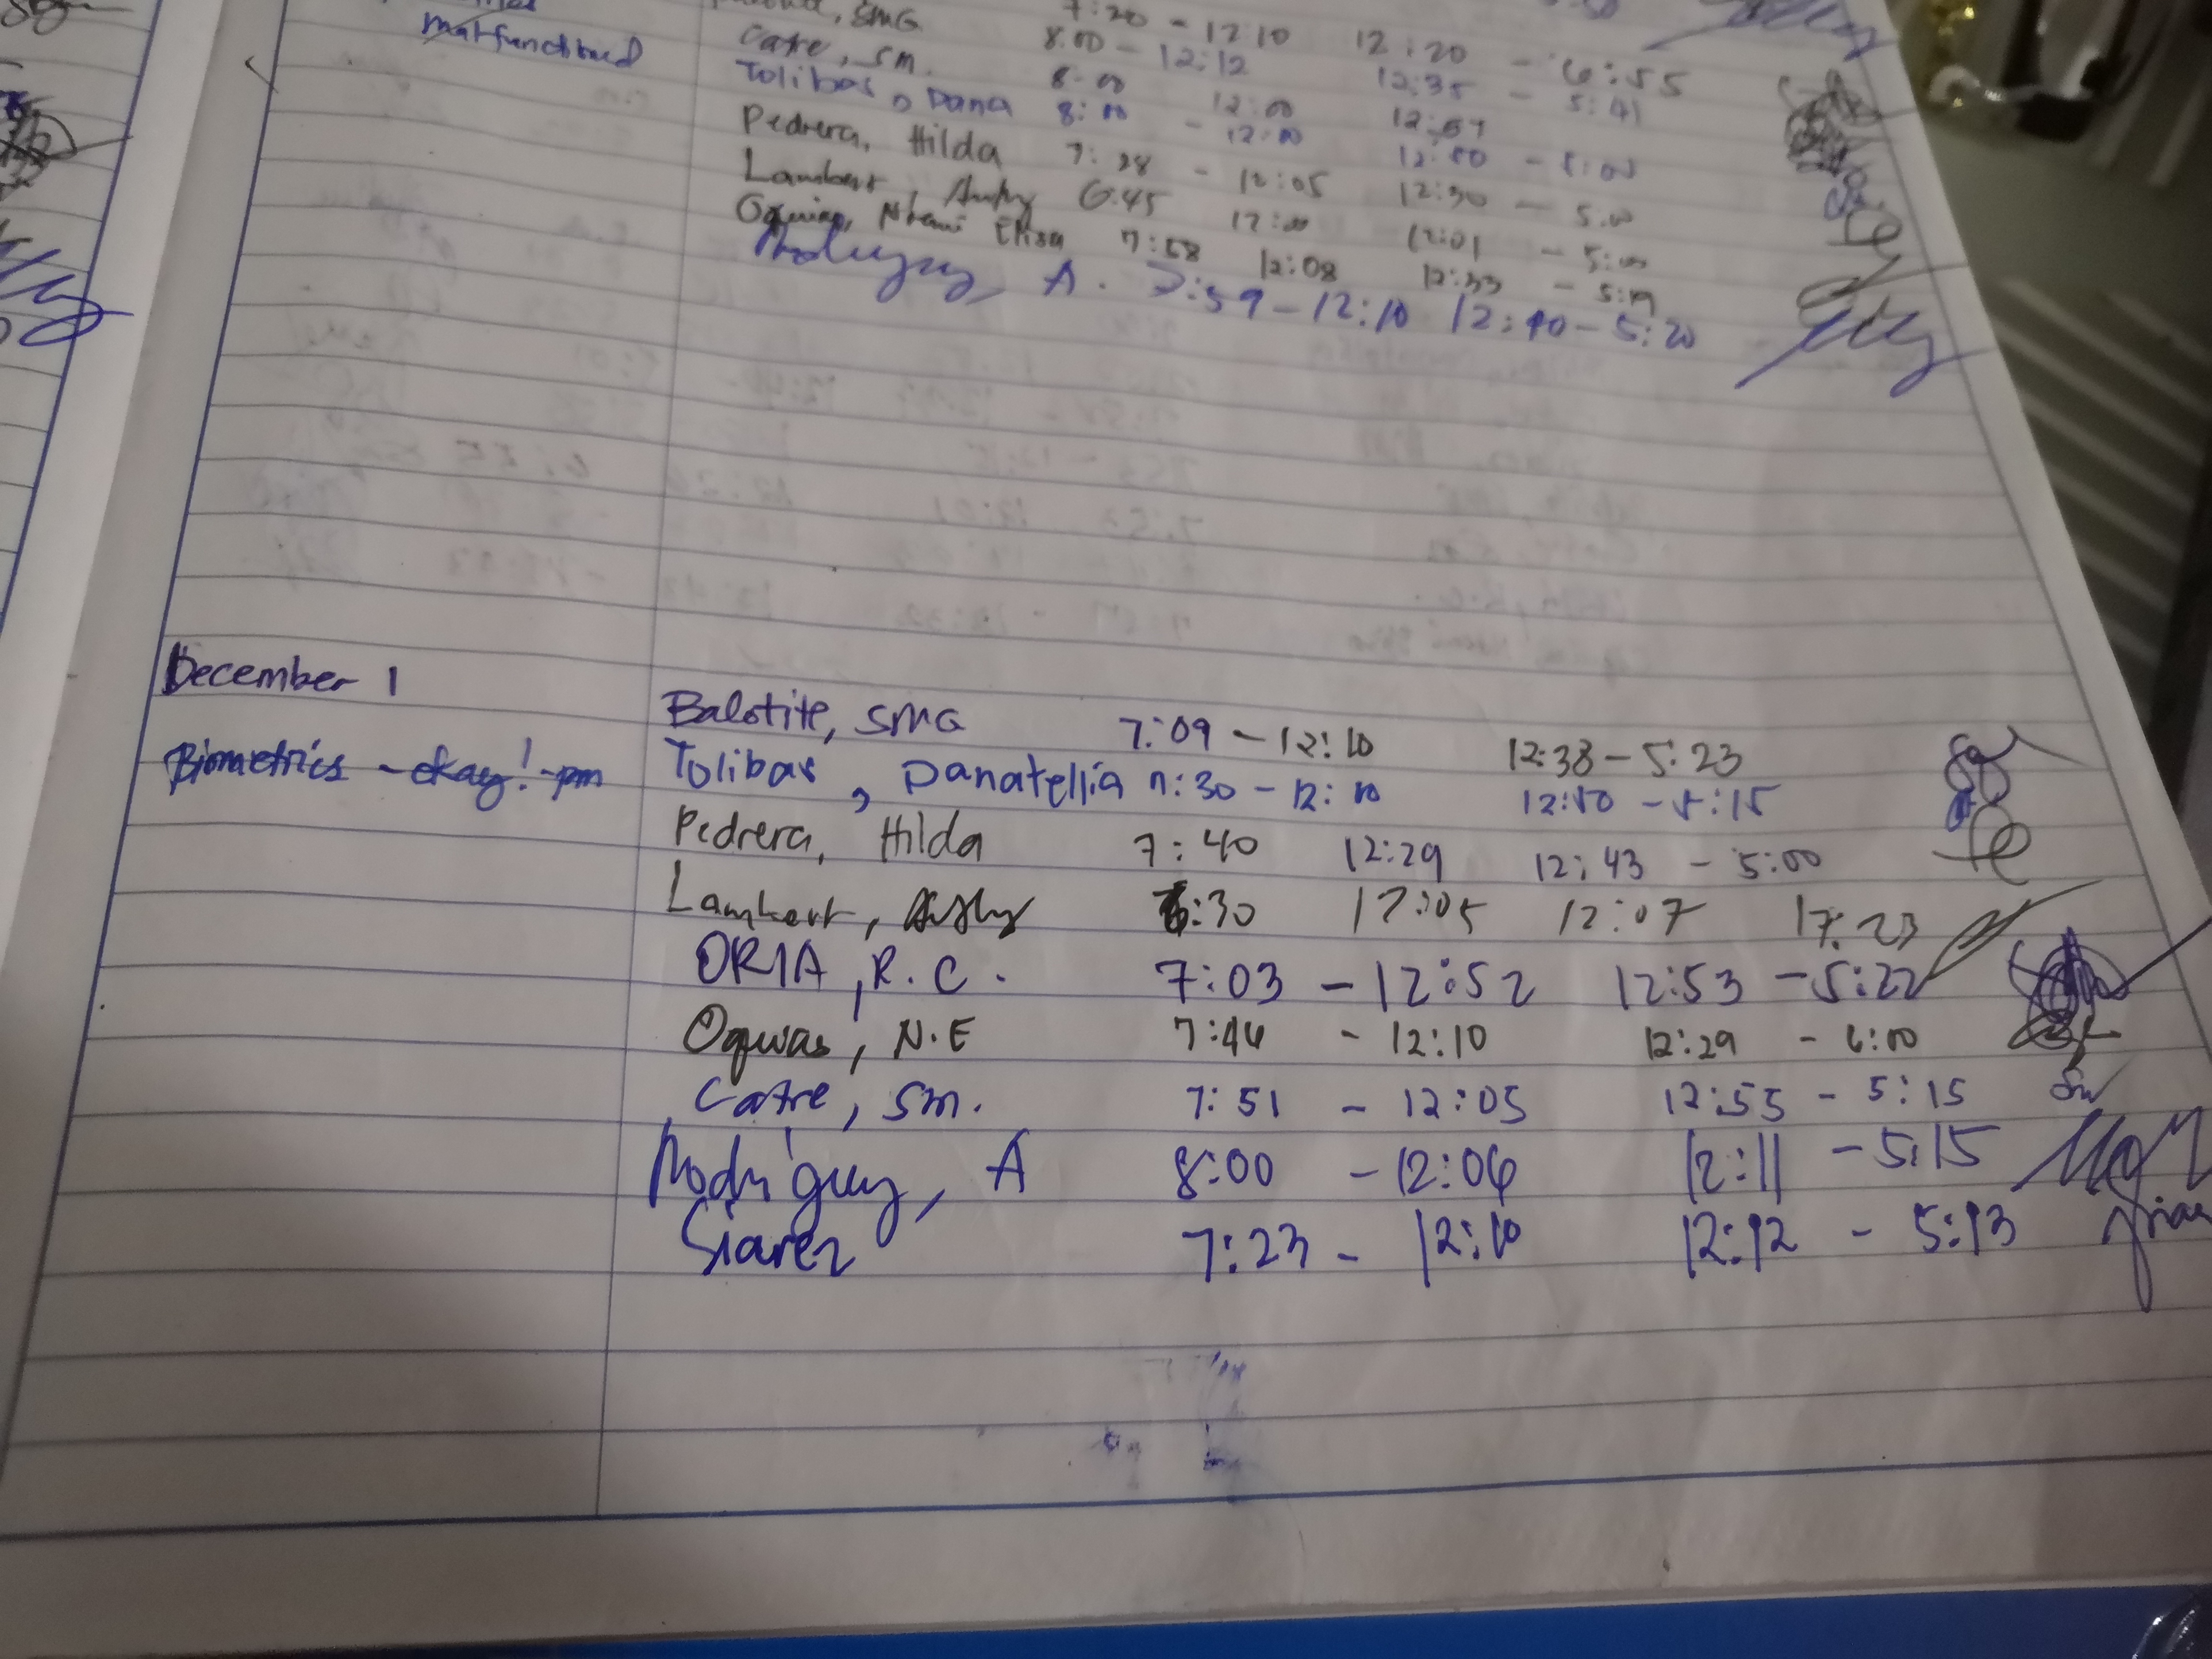 malfunctioned
, SMG 7:20 - 12:10 12:20 - 6:55
Catre, SM. 8:00 - 12:12 12:35 - 5:41
Tolibas, Dana 8:00 12:00 12:51
8:00 - 12:00 12:50 - 5:00
Pedrera, Hilda 7:28 - 12:05 12:30 - 5:00
Lambert, 6:45 12:00 12:01 - 5:00
Oquias, Noemi Elisa 7:58 12:08 12:33 -
Rodriguez, A. 7:59 - 12:10 12:40 - 5:20
December 1
Biometrics - okay! - pm
Balotite, SMG 7:09 - 12:10 12:38 - 5:23
Tolibas, Danatellia 7:30 - 12:10 12:50 - 5:15
Pedrera, Hilda 7:40 12:29 12:43 - 5:00
Lambert, 6:30 12:05 12:07 17:23
ORIA, R.C. 7:03 - 12:52 12:53 - 5:22
Oquias, N.E 7:46 - 12:10 12:29 - 6:00
Catre, SM. 7:51 - 12:05 12:55 - 5:15
Rodriguez, A 8:00 - 12:06 12:11 - 5:15
Siarez 7:23 - 12:10 12:12 - 5:13